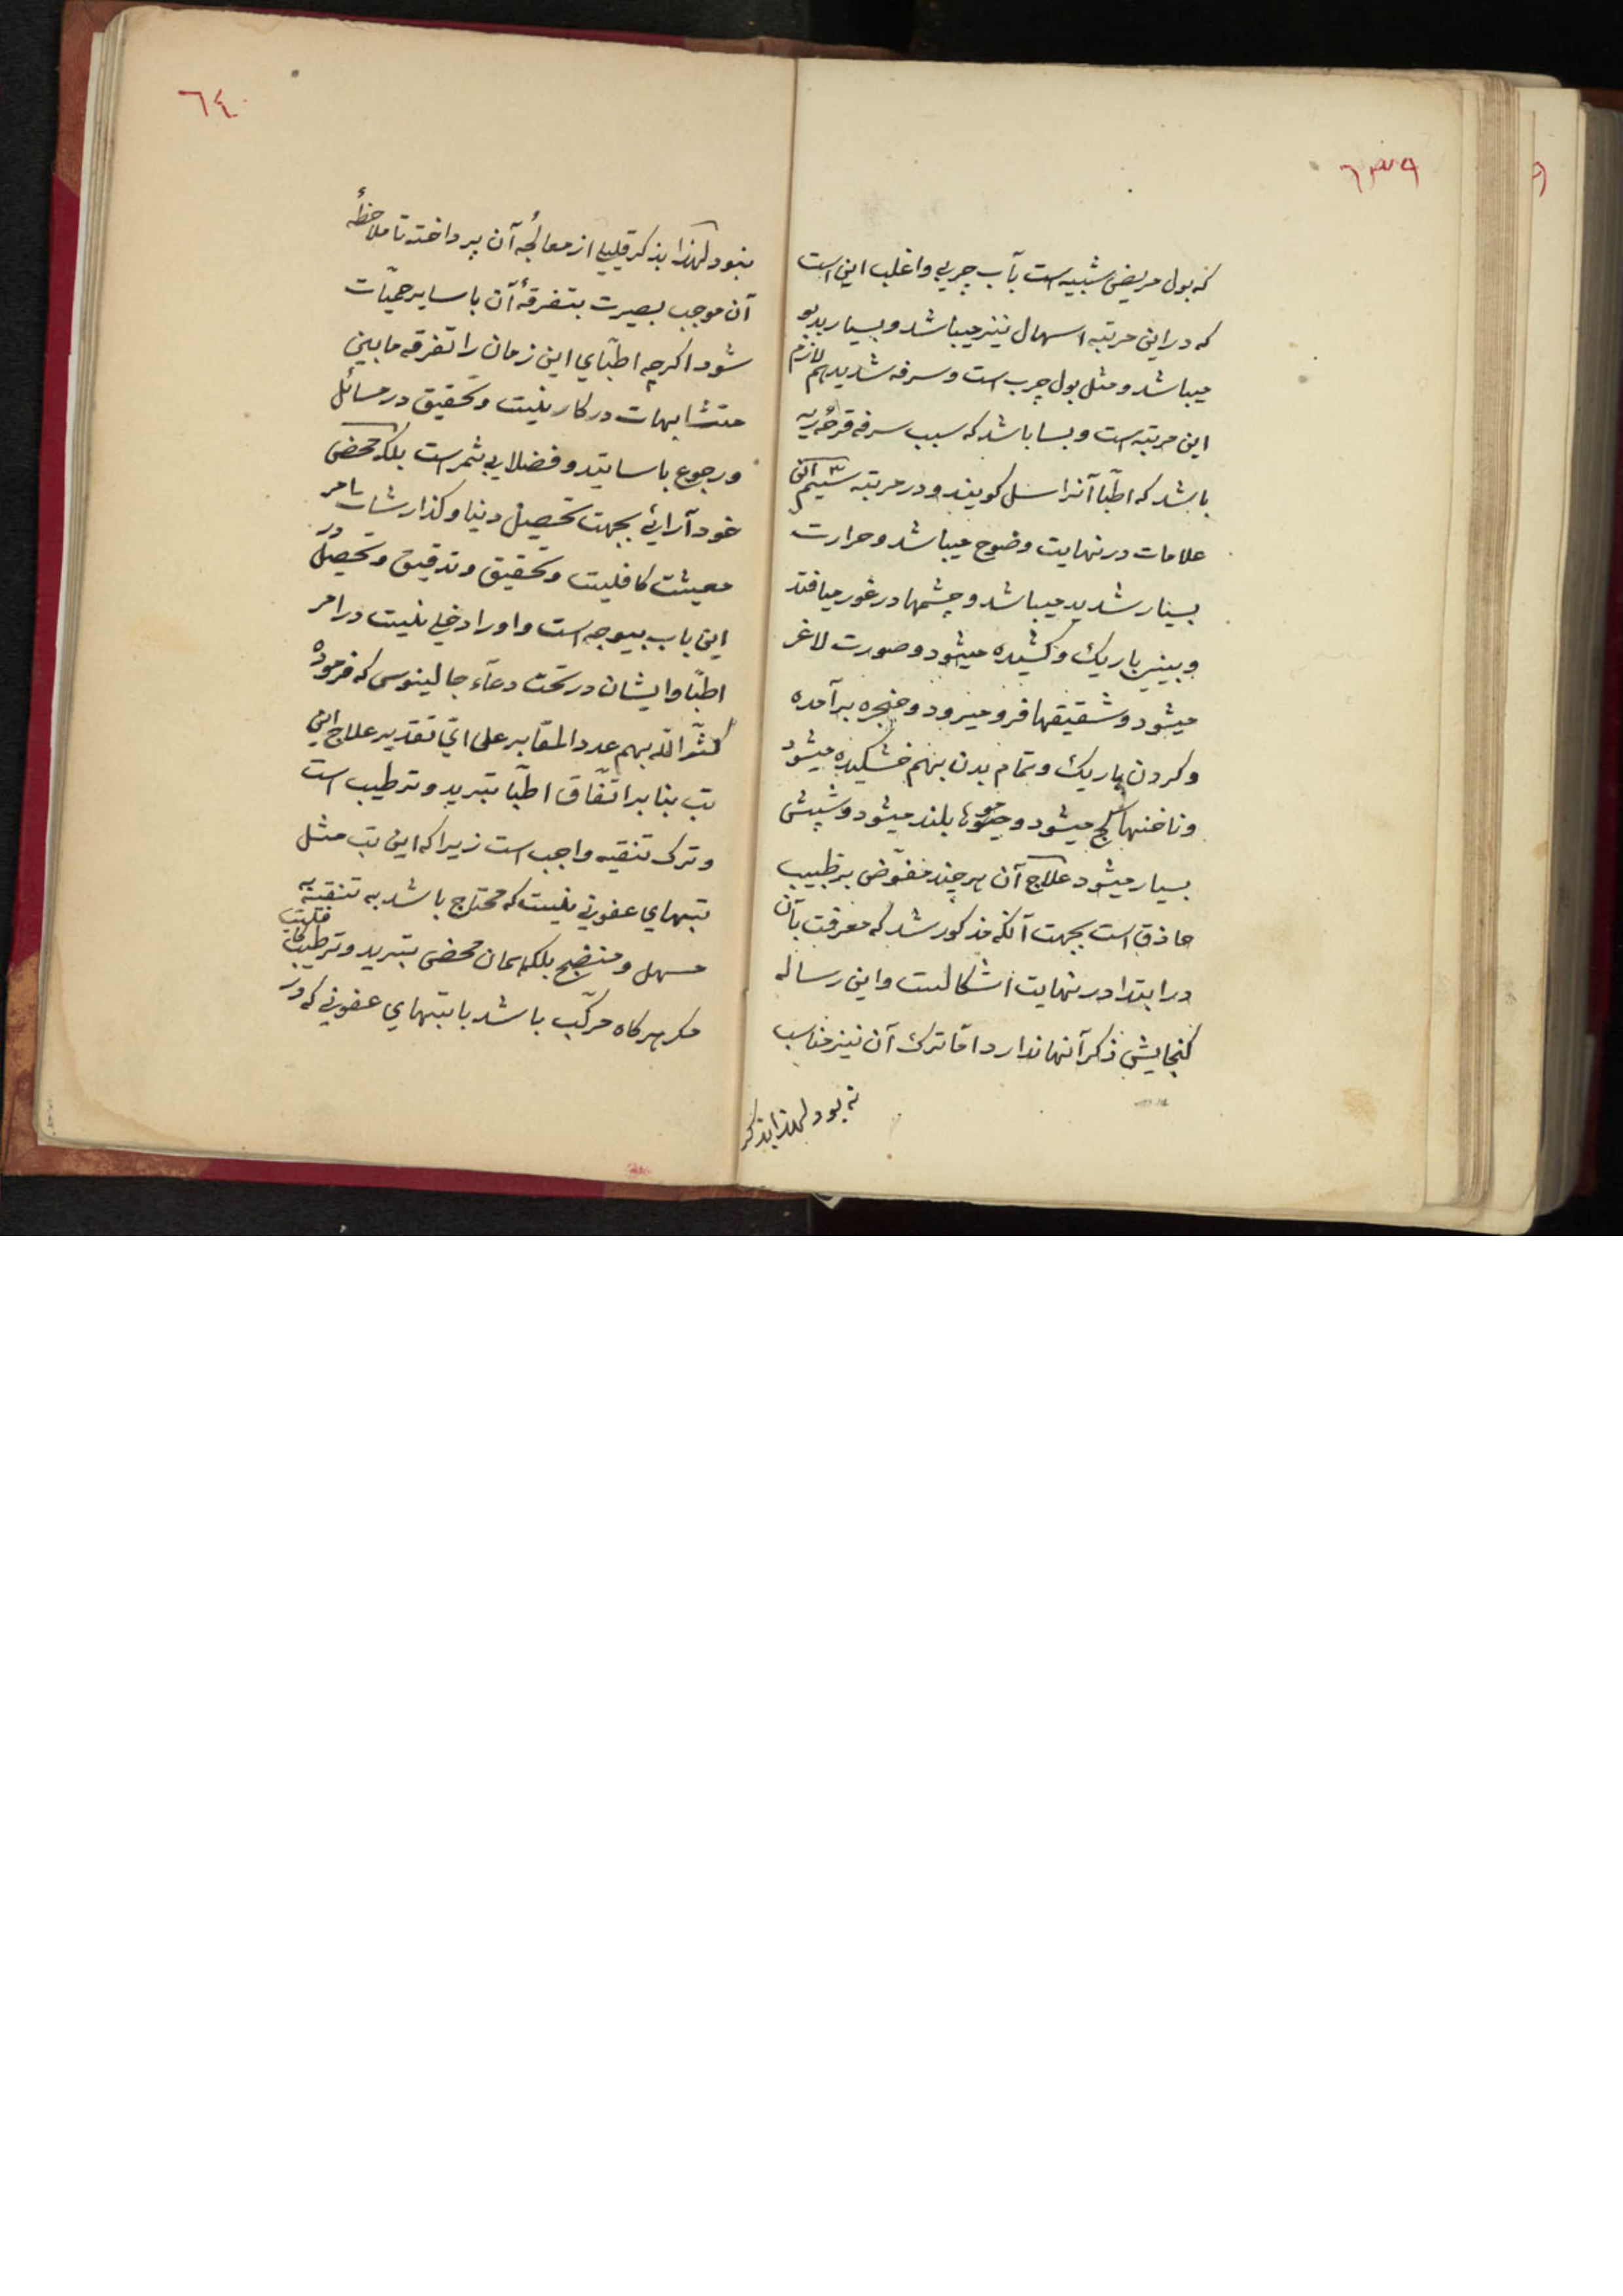 ٦٣٩
که بول مریض شبیه است بآب چربی و اغلب این است
که در این مرتبه اسهال نیز میباشد و بسیار بدبو
میباشد و مثل بول چرب است و سرفه شدید هم لازم
این مرتبه است و بسا باشد که سبب سرفه قرحه ریه
باشد که اطبّا آنرا سل کویند و در مرتبه سیّم این
علامات در نهایت وضوح میباشد و حرارت
بسیار شدید میباشد و چشمها در غور میافتد
و بینی باریک و کشیده میشود و صورت لاغر
میشود و شقیقها فرو میرود و حنجره برآمده
و کردن باریک و تمام بدن بهم خشکیده میشود
و ناخنها کج میشود و موها بلند میشود و شپش
بسیار میشود علاج آن هر چند مفوّض بر طبیب
حاذق است بجهت آنکه مذکور شد که معرفت بآن
در ابتدا در نهایت اشکالست و این رساله
کنجایش ذکر آنها ندارد امّا ترک آن نیز مناسب
نبود لهذا بذکر
٦٤
نبود لهذا بذکر قلیلی از معالجهٔ آن پرداخته تا ملاحظهٔ
آن موجب بصیرت بتفرقهٔ آن با سایر حمیّات
شود اکرچه اطبّای این زمان را تفرقه مابین
متشابهات در کار نیست و تحقیق در مسائل
و رجوع باساتید و فضلا بی ثمر است بلکه محض
خودآرائی بجهت تحصیل دنیا و کذارشات امر
معیشت کافیست و تحقیق و تدقیق و تحصیل در
این باب بیوجه است و او را دخلی نیست در امر
اطبّا و ایشان در تحت دعآء جالینوس که فرموده
کثّر الله بهم عدد المقابر علی ایّ تقدیر علاج این
تب بنابر اتّفاق اطبّا تبرید و ترطیب است
و ترک تنقیه واجب است زیرا که این تب مثل
تبهای عفونی نیست که محتاج باشد به تنقیه
مسهل و منضج بلکه همان محض تبرید و ترطیب کافیست
مکر هرکاه مرکّب باشد با تبهای عفونی که در